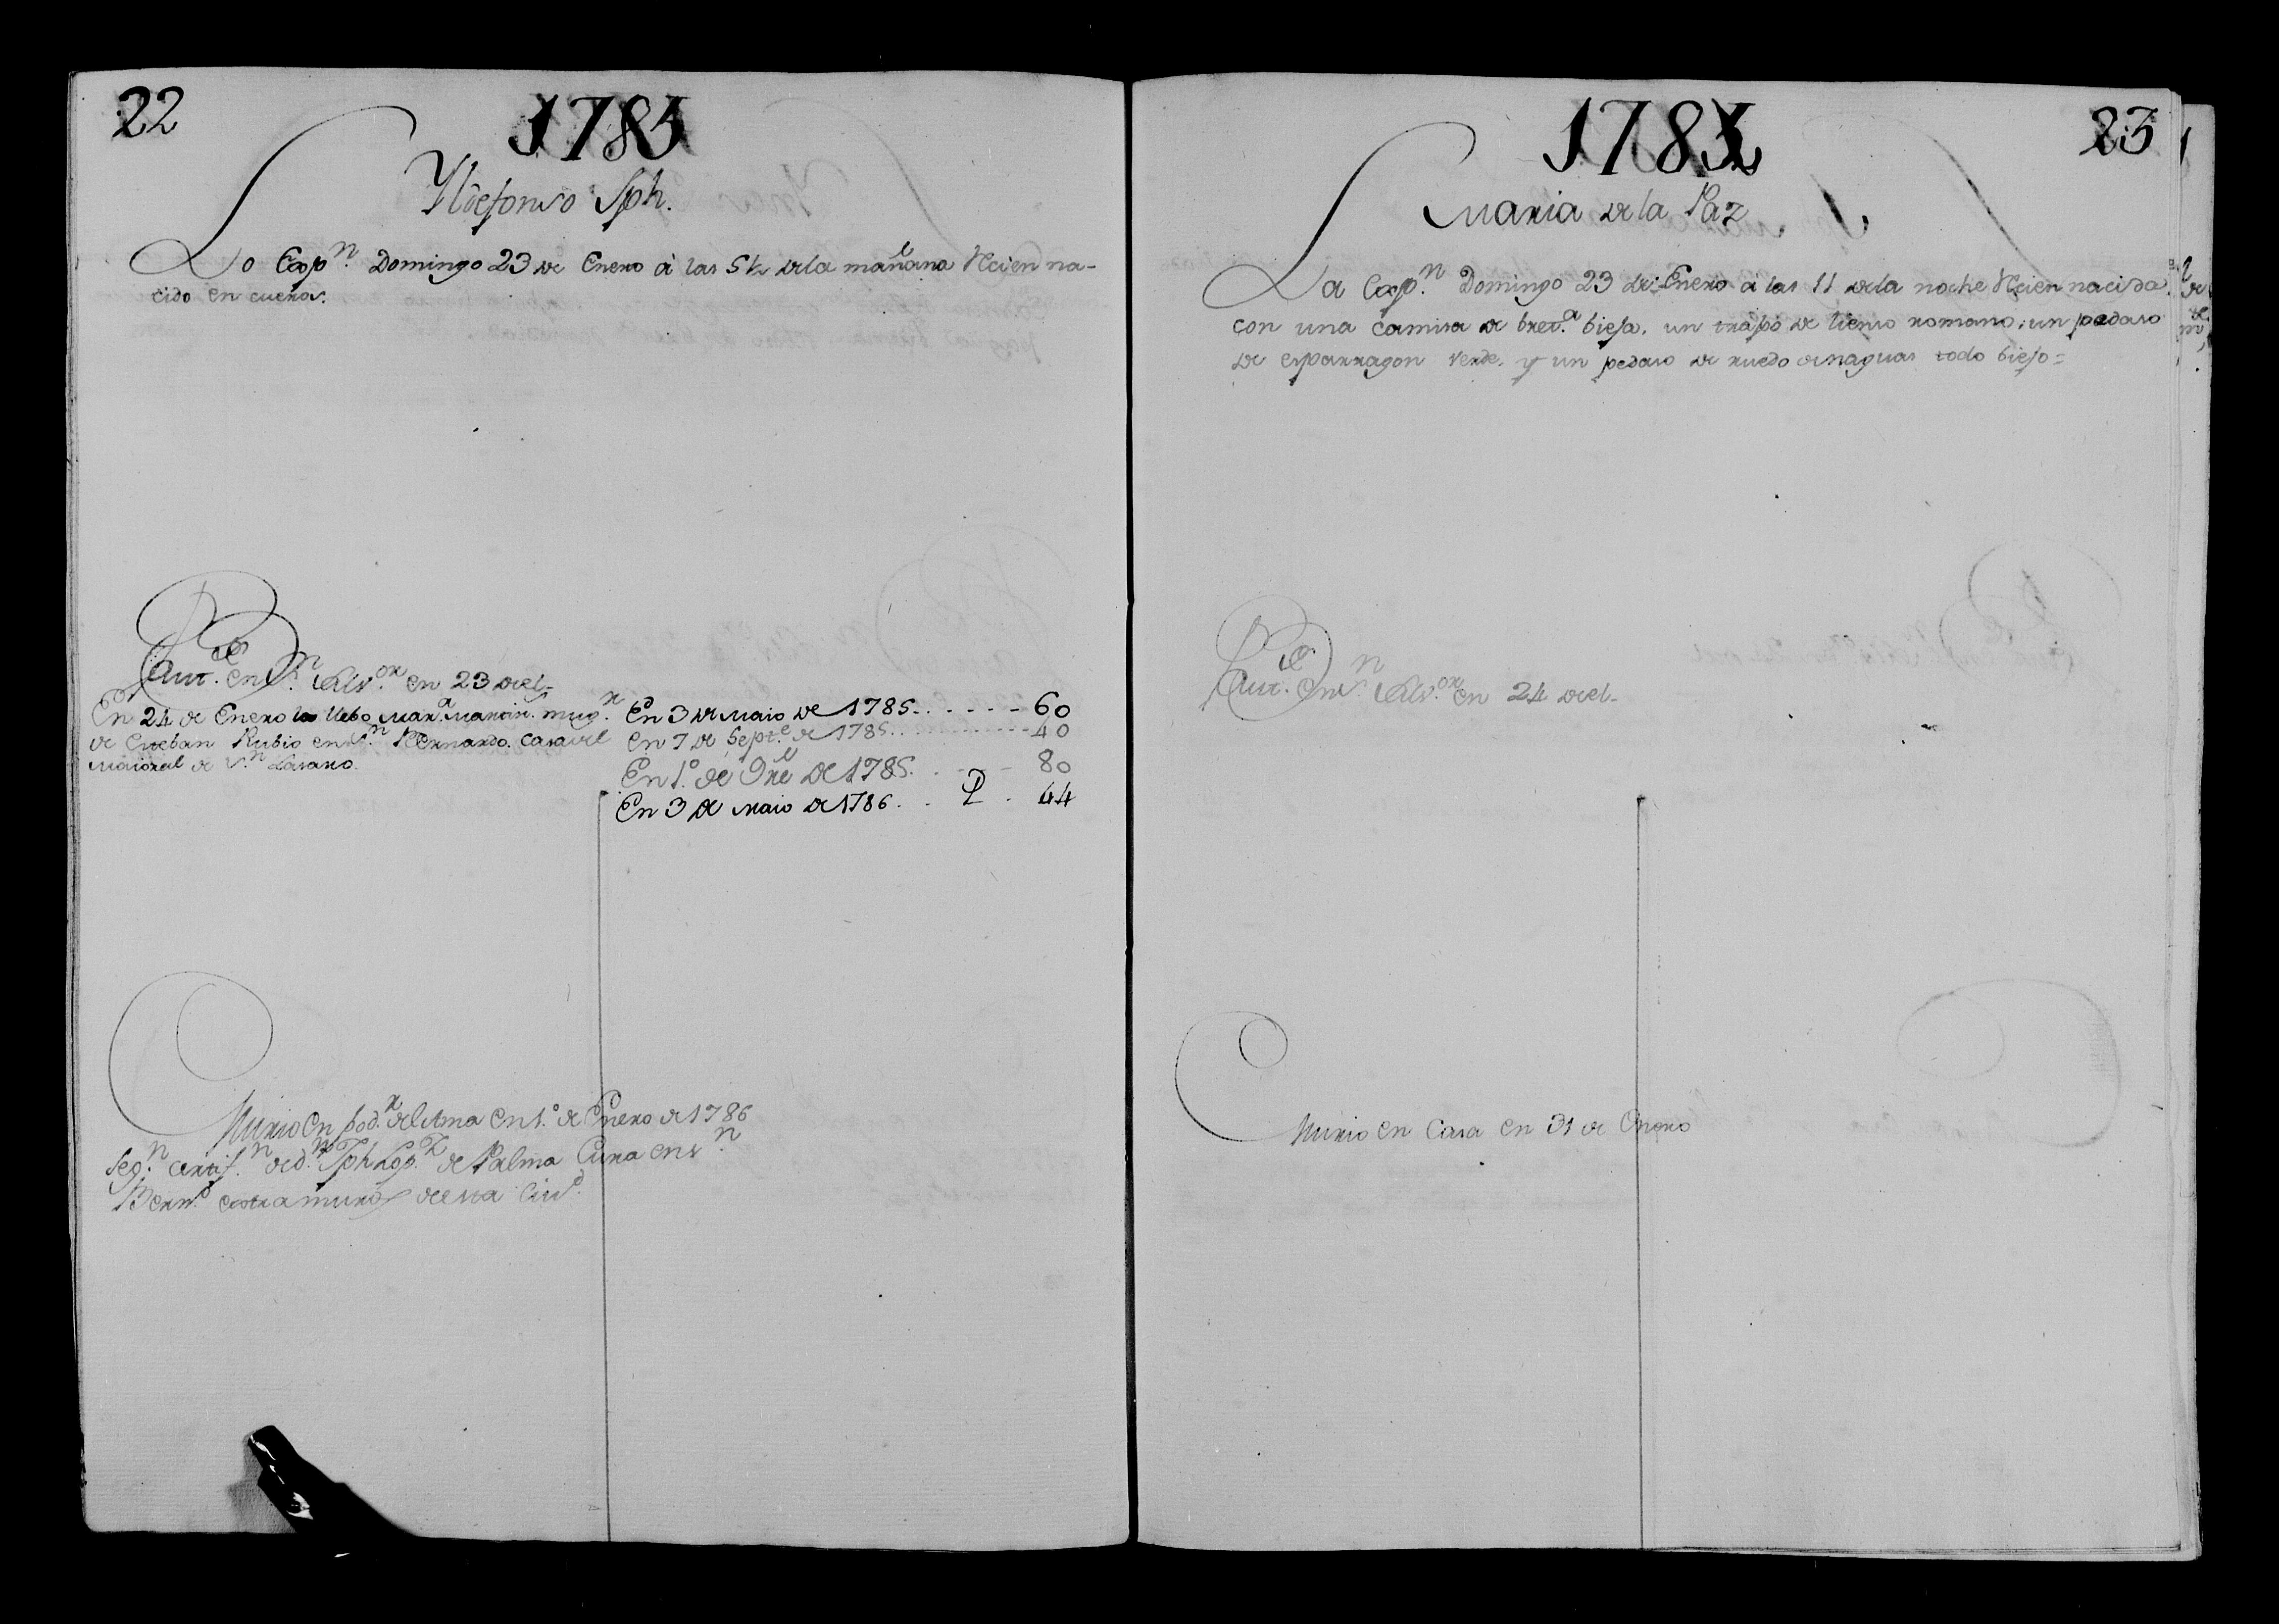 22
1785
Yldefonso Jph.
Lo Expn. Domingo 23 de Enero à las 5½ dela mañana Recien na-
cido en cueros.
Baut.do en Sn. Salvor. en 23 del-
En 24 de Enero lo llebo Mara. Martin. mugr.
de Esteban Rubio en Sn. Bernardo. Casa del
Maioral de Sn. Lasaro.
En 3 de Maio de 1785 - - - - - - 60
En 7 de Septe. de 1785 - - - - - - 40
En 1o. de 9re de 1785. - - - - 80
En 3 de Maio de 1786 . . P . 44
Murio en podr. del Ama en 1o. de Enero de 1786
segn. certifn. de dn. Jph Lopz. de Palma Cura en Sn.
Berndo. extramuros desta Ciud.
23
1785
Maria de la Paz
La Expn. Domingo 23 de Enero à las 11 dela noche Recien nacida.
con una camisa de breta. bieja. un trapo de lienso romano; un pedaso
de esparragon verde. y un pedaso de ruedo de naguas todo biejo=
Baut.da en Sn. Salvor. en 24 del-
Murio en Casa en 31 de Enero